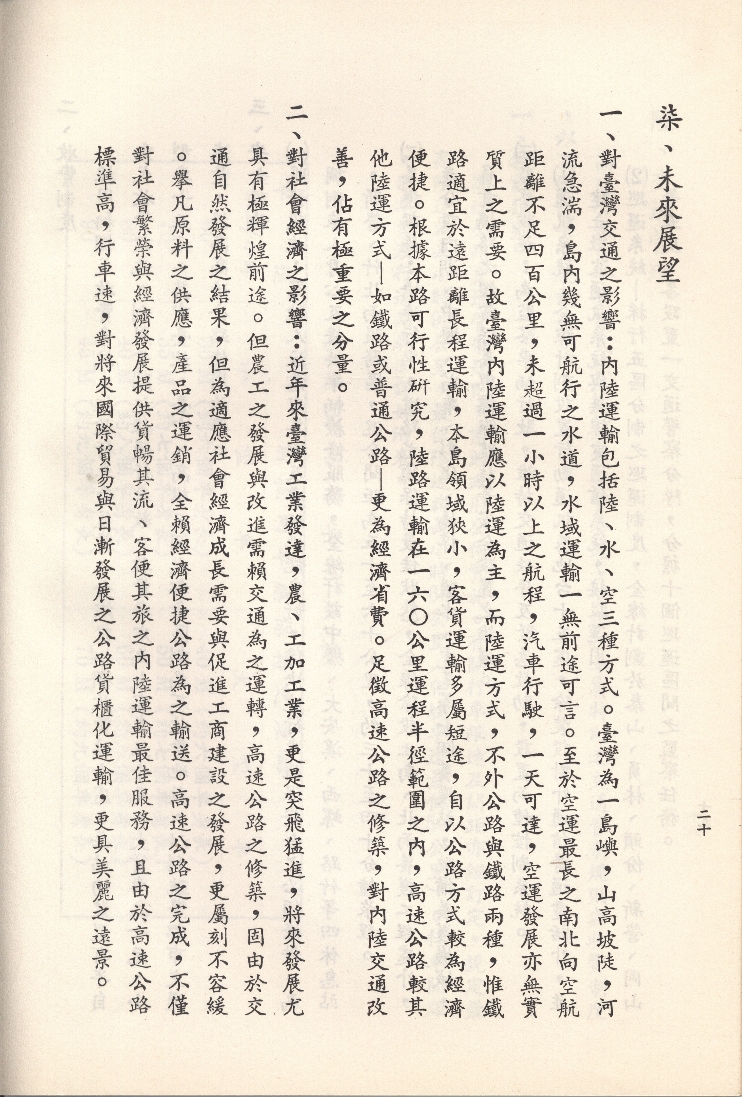 柒、未來展望
一、對臺灣交通之影響：內陸運輸包括陸、水、空三種方式。臺灣為一島嶼，山高坡陡，河
流急湍，島內幾無可航行之水道，水域運輸一無前途可言。至於空運最長之南北向空航
距離不足四百公里，未超過一小時以上之航程，汽車行駛，一天可達，空運發展亦無實
質上之需要。故臺灣內陸運輸應以陸運為主，而陸運方式，不外公路與鐵路兩種，惟鐵
路適宜於遠距離長程運輸，本島領域狹小，客貨運輸多屬短途，自以公路方式較為經濟
便捷。根據本路可行性研究，陸路運輸在一六〇公里運程半徑範圍之內，高速公路較其
他陸運方式—如鐵路或普通公路—更為經濟省費。足徵高速公路之修築，對內陸交通改
善，佔有極重要之分量。
二、對社會經濟之影響：近年來臺灣工業發達，農、工加工業，更是突飛猛進，將來發展尤
具有極輝煌前途。但農工之發展與改進需賴交通為之運轉，高速公路之修築，固由於交
通自然發展之結果，但為適應社會經濟成長需要與促進工商建設之發展，更屬刻不容緩
。舉凡原料之供應，產品之運銷，全賴經濟便捷公路為之輸送。高速公路之完成，不僅
對社會繁榮與經濟發展提供貨暢其流、客便其旅之內陸運輸最佳服務，且由於高速公路
標準高，行車速，對將來國際貿易與日漸發展之公路貨櫃化運輸，更具美麗之遠景。
二十